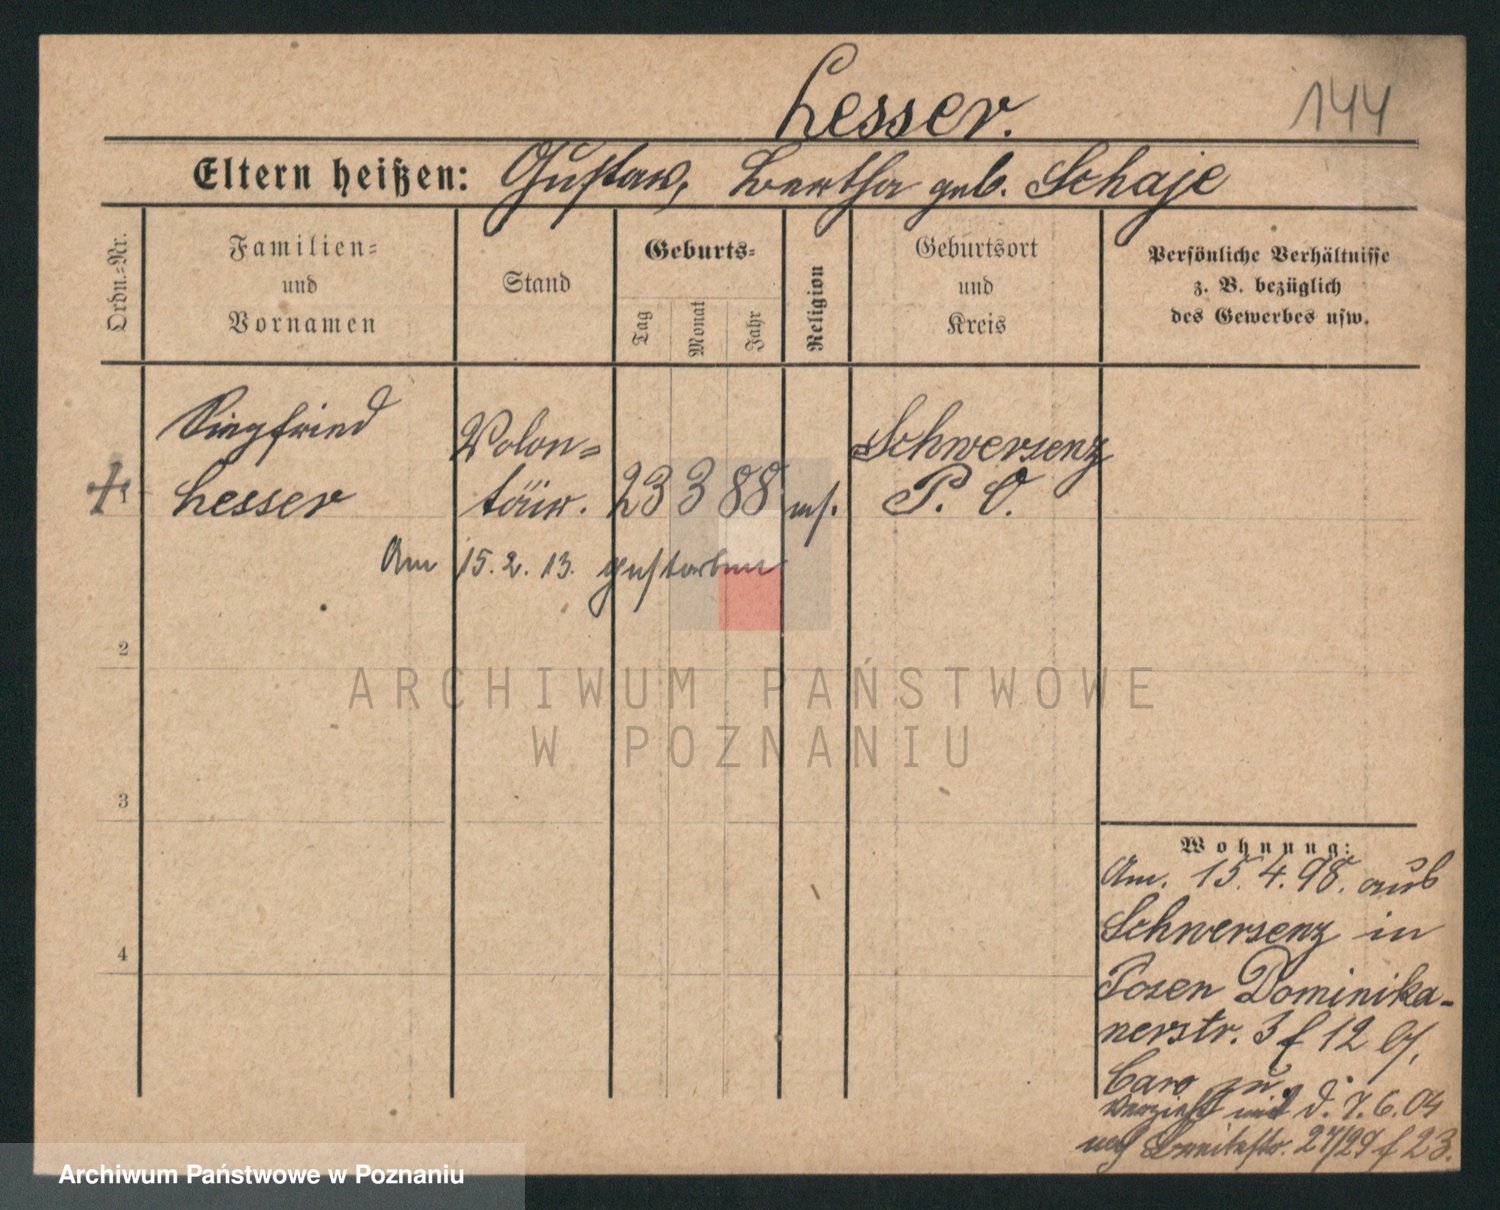 Lesser.
144
Eltern heißen: Gustav, Bertha geb. Schaje
Ordn.=Nr.
Familien=
und
Vornamen
Stand
Geburts=
Tag
Monat
Jahr
Religion
Geburtsort
und
Kreis
Persönliche Verhältnisse
z. B. bezüglich
des Gewerbes usw.
Siegfried
Lesser
Volon=
tär.
23 3 88
ms.
Schwersenz
P. O.
Am 15.2.13. gestorben
2
3
4
Wohnung:
Am. 15.4.98. aus
Schwersenz in
Posen Dominika-
nerstr. 3 f 12 b/.
Caro zu
verzieht mit d. 7.6.04
nach Breitestr. 27/29 f 23.
ARCHIWUM PAŃSTWOWE
W POZNANIU
Archiwum Państwowe w Poznaniu